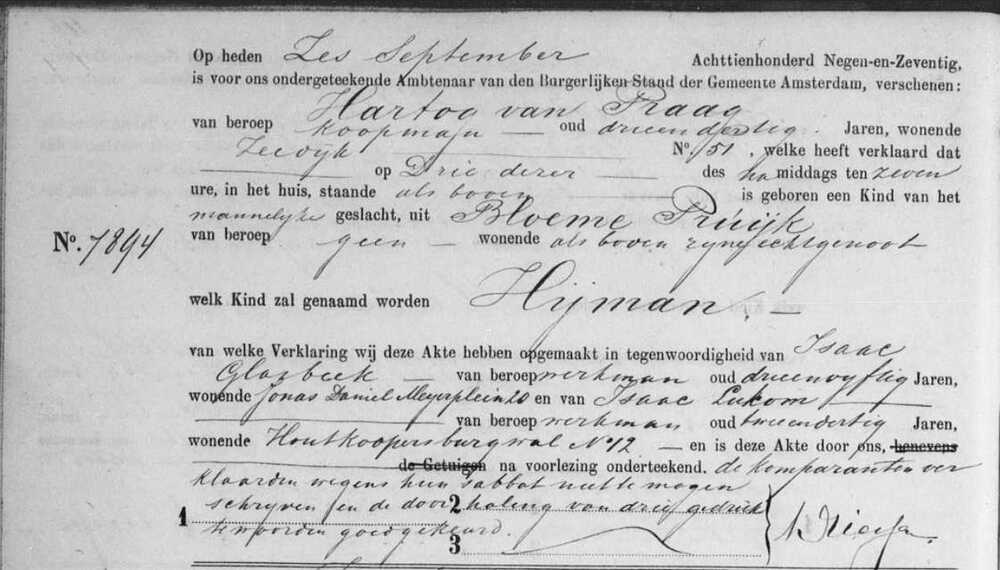 Op heden Zes September Achttienhonderd Negen-en-Zeventig,
is voor ons ondergeteekende Ambtenaar van den Burgerlijken Stand der Gemeente Amsterdam, verschenen:
Hartog van Praag
van beroep koopman — oud drieendertig Jaren, wonende
Zeedijk N° 151, welke heeft verklaard dat
op Drie dezer des na middags ten zeven
ure, in het huis, staande als boven is geboren een Kind van het
mannelijke geslacht, uit Bloeme Pruijk
N°. 7894
van beroep geen — wonende als boven zijne echtgenoot
welk Kind zal genaamd worden Hijman. —
van welke Verklaring wij deze Akte hebben opgemaakt in tegenwoordigheid van Isaac
Glasbeek — van beroep werkman oud drieenvyftig Jaren,
wonende Jonas Daniel Meyerplein 20 en van Isaac Lukom
van beroep werkman oud tweendertig Jaren,
wonende Houtkoopersburgwal N° 12 — en is deze Akte door ons, benevens
de Getuigen na voorlezing onderteekend. de komparanten ver
klaarden wegens hun sabbat niet te mogen
schryven en de doorhaling van drie gedruk
te woorden goedgekeurd.
1
2
3